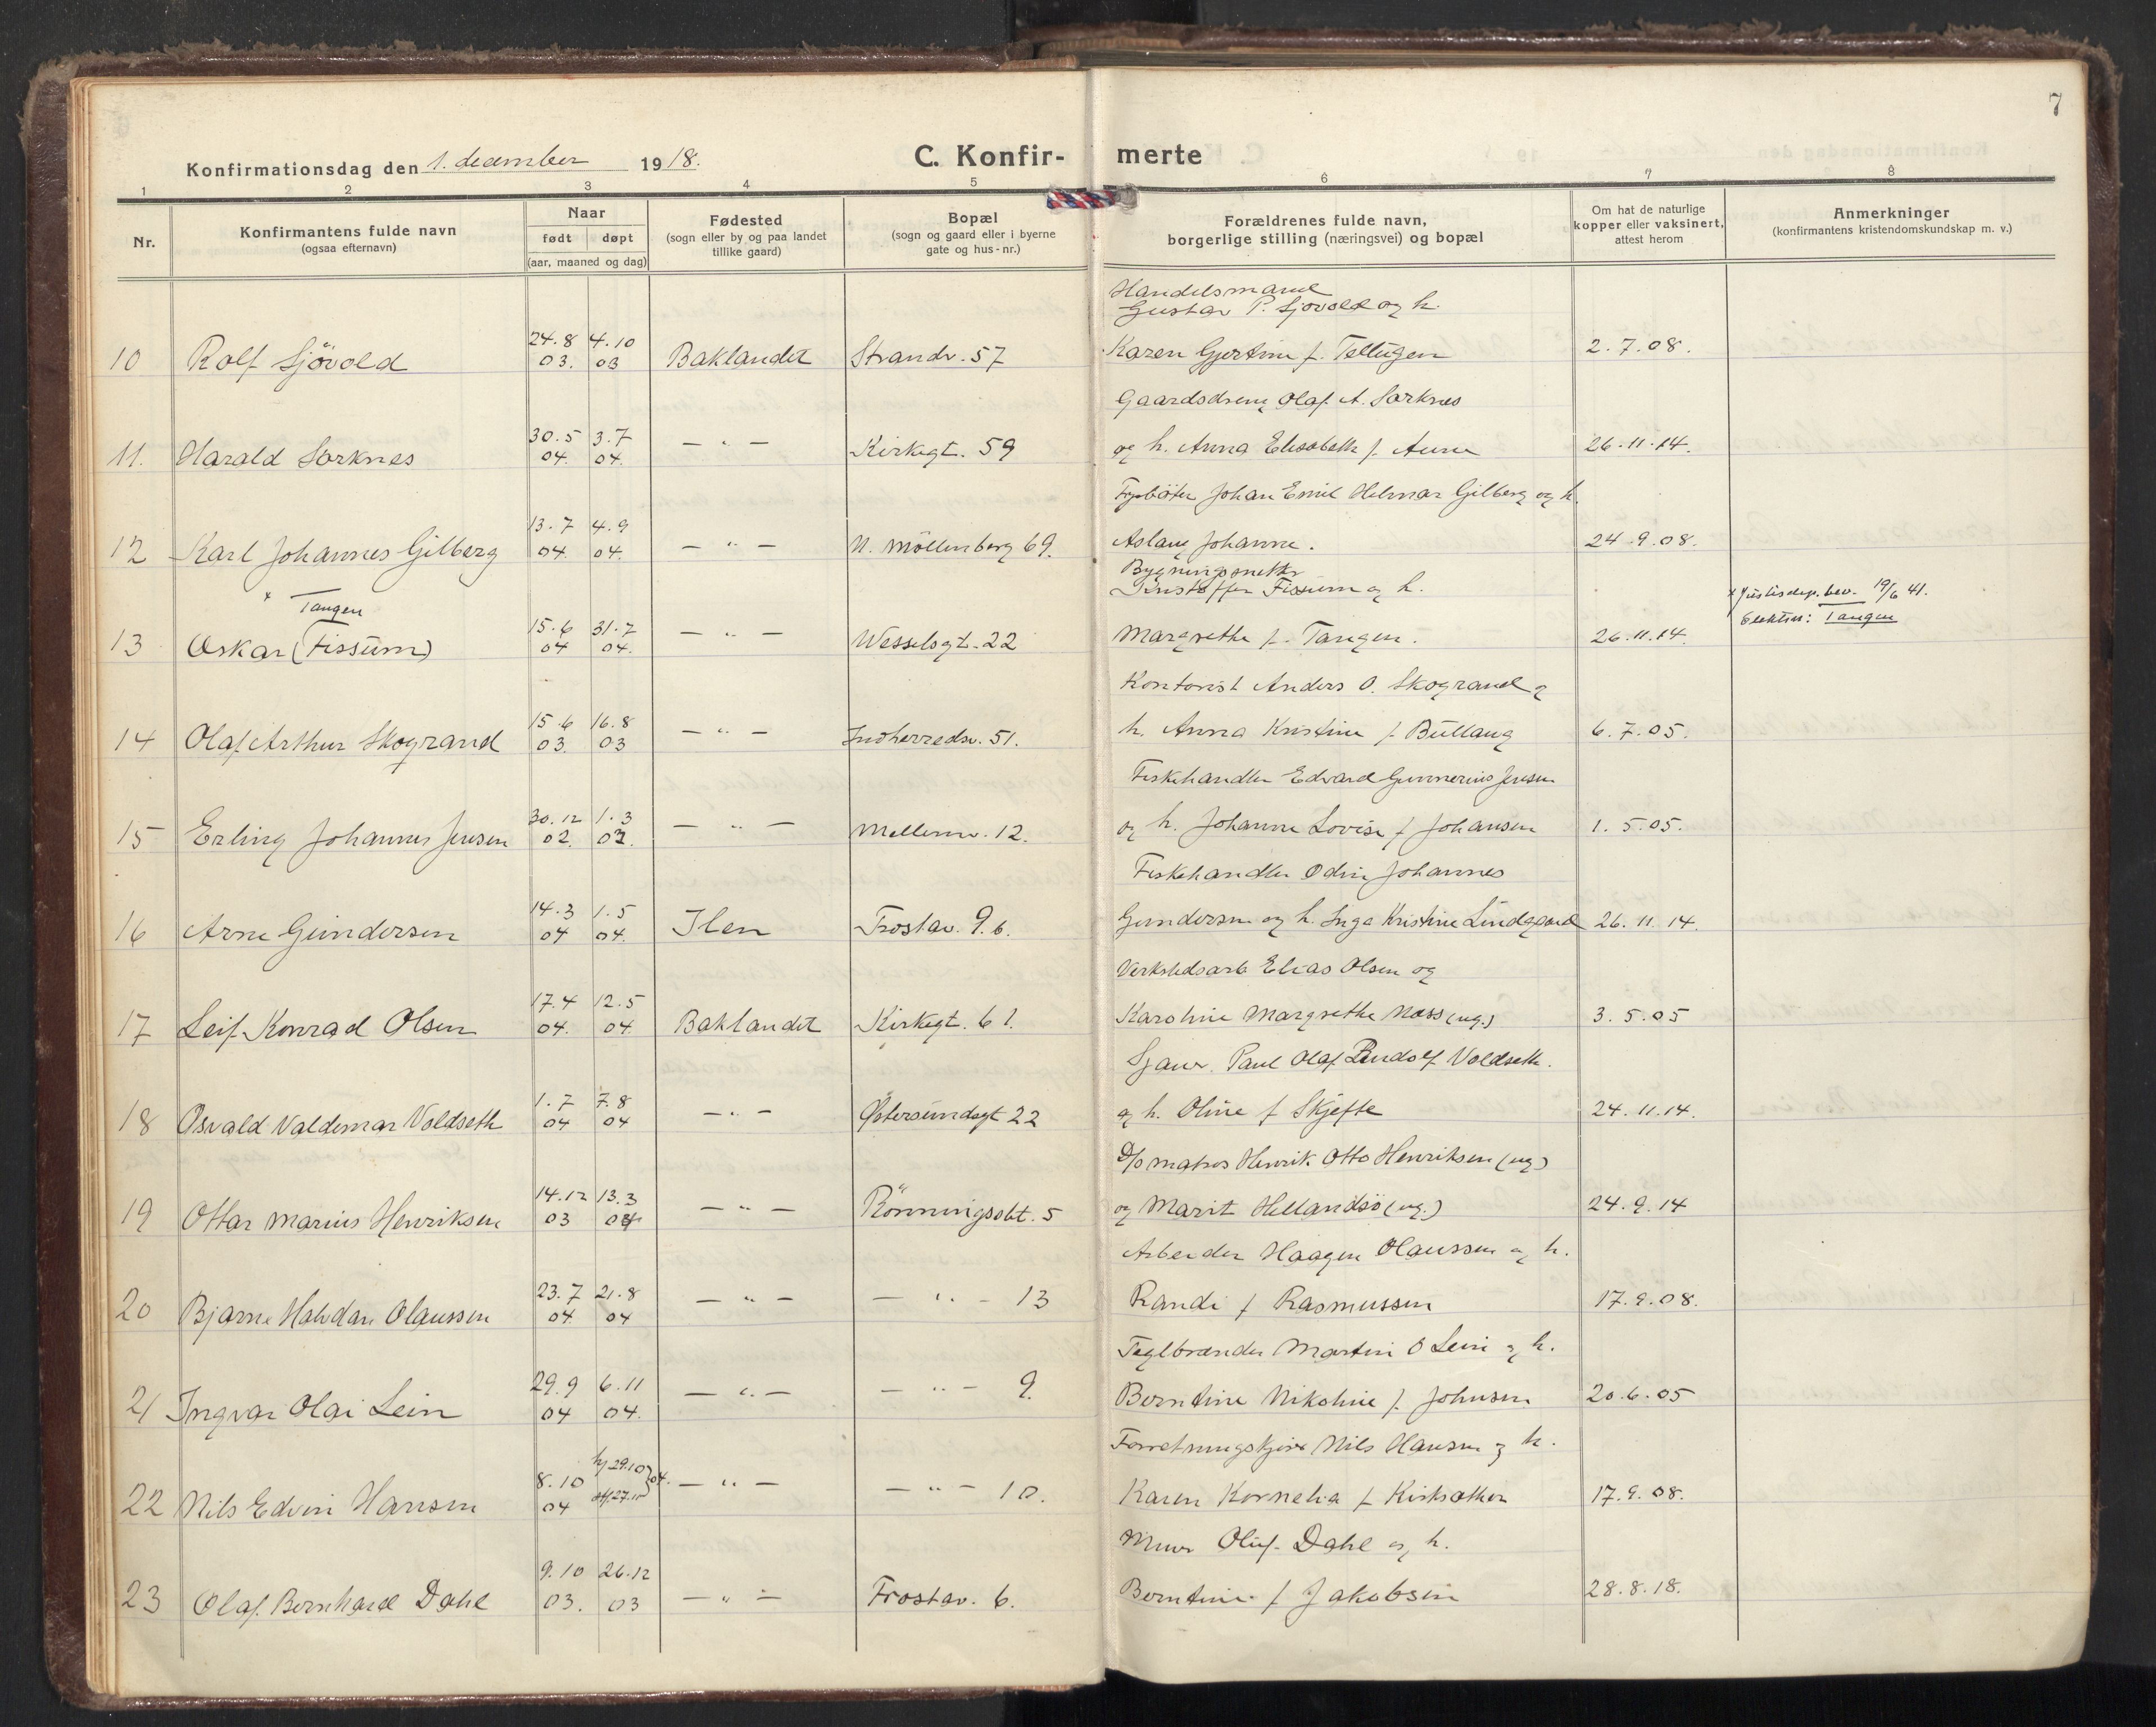 7
Konfirmationsdag den 1. december 1918.
C. Konfirmerte
1 2 3 4 5 6 7 8
Nr.
Konfirmantens fulde navn
(ogsaa efternavn)
Naar
født døpt
(aar, maaned og dag)
Fødested
(sogn eller by og paa landet
tillike gaard)
Bopæl
(sogn og gaard eller i byerne
gate og hus-nr.)
Forældrenes fulde navn,
borgerlige stilling (næringsvei) og bopæl
Om hat de naturlige
kopper eller vaksinert,
attest herom
Anmerkninger
(konfirmantens kristendomskundskap m. v.)
Handelsmand
Gustav P. Sjövold og h.
24.8 4.10
10 Rolf Sjövold 03. 03 Baklandet Strandv. 57 Karen Gjertine f. Tellugen 2.7.08.
Gaardsdreng Olaf A. Sorknes
30.5 3.7
11. Harald Sorknes 04. 04. — " — Kirkegt. 59 og h. Anna Elisabeth f. Aune 26.11.14.
Fyrböter Johan Emil Helmar Gilberg og h.
13.7 4.9
12 Karl Johannes Gilberg 04. 04. — " — N. Möllenberg 69. Aslaug Johanne. 24.9.08.
Bygningssnekker
Kristoffer Fissum og h.
x Justisdep. bev. 19/6 41.
Slektsn: Tangen
x Tangen
15.6 31.7
13 Oskar (Fissum) 04 04. — " — Wesselsgt. 22 Margrethe f. Tangen. 26.11.14.
Kontorist Anders O. Skogrand og
15.6 16.8
14 Olaf Arthur Skogrand 03. 03 — " — Indherredsv. 51. h. Anna Kristine f. Bullaug 6.7.05.
Fiskehandler Edvard Gunnerius Jensen
30.12 1.3
15 Erling Johannes Jensen 02. 03. — " — Mellemv. 12. og h. Johanne Lovise f Johansen 1.5.05.
Fiskehandler Odin Johannes
14.3 1.5
16 Arne Gundersen 04 04. Ilen Frostav. 9.b. Gundersen og h. Inga Kristine Lindgaard 26.11.14.
Verkstedsarb Elias Olsen og
17.4 12.5
17 Leif Konrad Olsen 04. 04. Baklandet Kirkegt. 61. Karoline Margrethe Moss (ug.) 3.5.05
Sjauer. Paul Olaf Rudolf Voldseth.
1.7 7.8
18 Osvald Valdemar Voldseth 04 04 — " — Östersundsgt 22 og h. Oline f Skjefte 24.11.14.
D/s matros Henrik Otto Henriksen (ug)
14.12 13.3
19 Ottar Marius Henriksen 03 04 — " — Rönningsslt. 5 og Marit Hellandsö (ug.) 24.9.14
Arbeider Haagen Olaussen og h.
23.7 21.8
20 Bjarne Halvdan Olaussen 04. 04 — " — — " — 13 Randi f Rasmussen 17.9.08.
Teglbrænder Martin O Lein og h.
29.9 6.11
21 Ingvar Olai Lein 04 04. — " — — " — 9. Berntine Nikoline f. Johnsen 20.6.05
Forretningskjörer Nils Hansen og h.
8.10 hj 29.10 27.11 04.
22 Nils Edvin Hansen 04 — " — — " — 10. Karen Kornelia f Kirksæther 17.9.08.
Murer Oluf Dahl og h.
9.10 26.12
23 Olaf Bernhard Dahl 03. 03 — " — Frostav. 6. Berntine f Jakobsen 28.8.18.